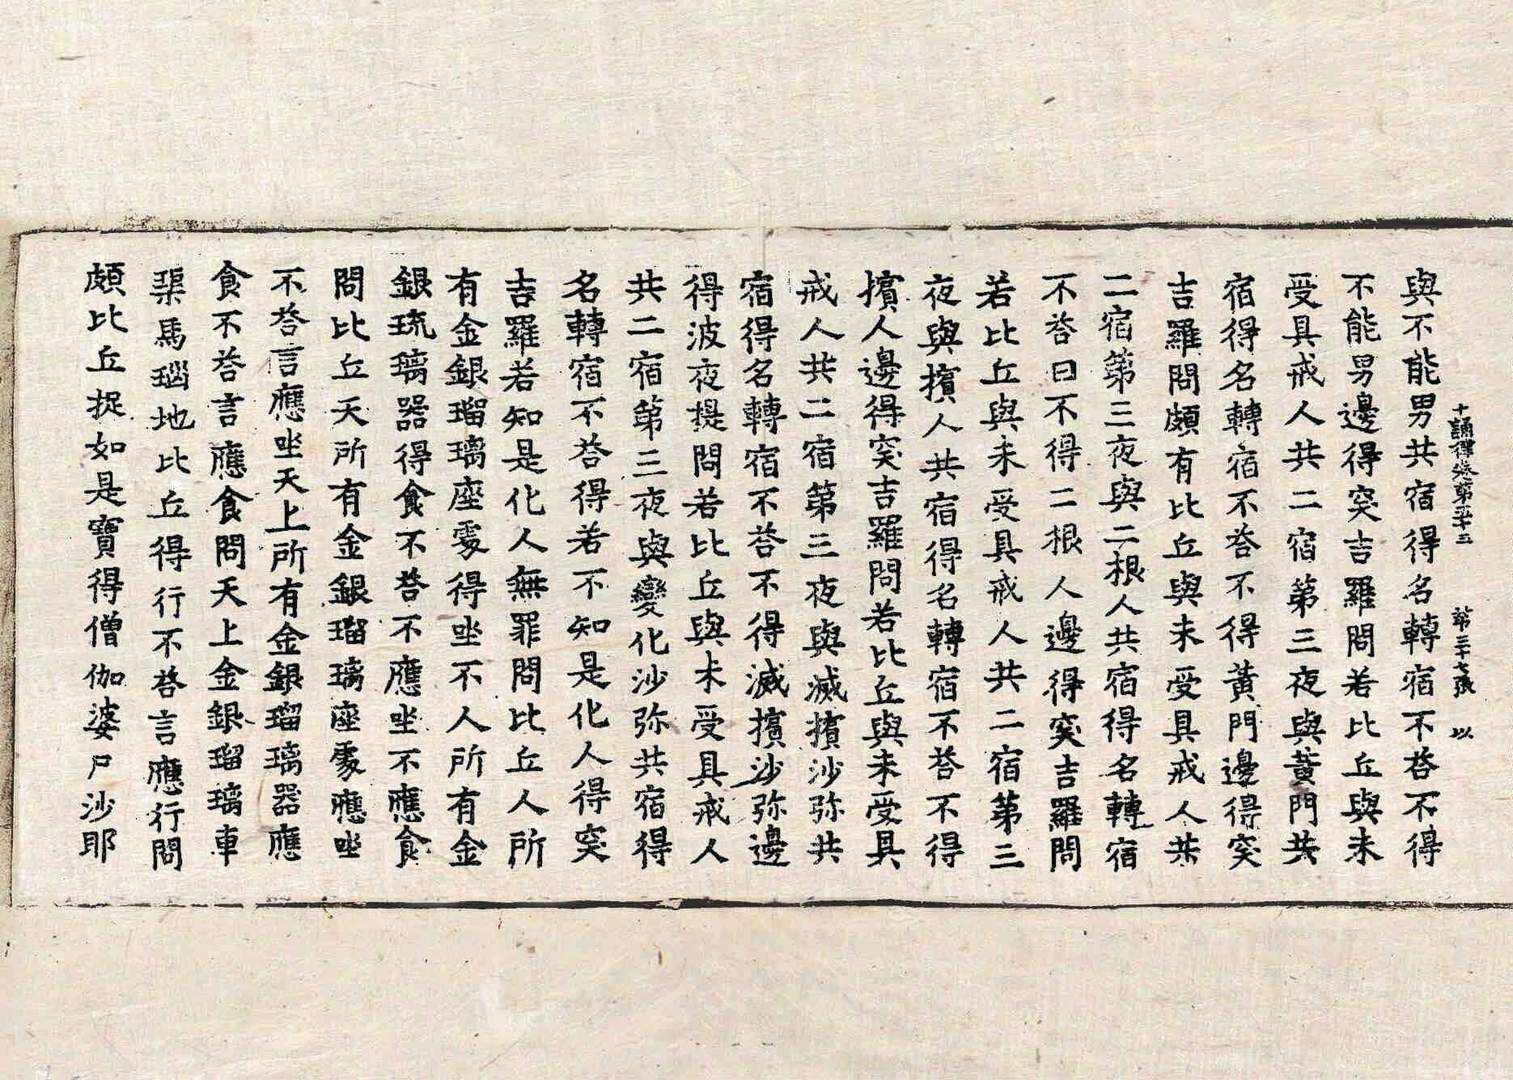 十誦律卷第五十三 第三十七張 以
與不能男共宿得名轉宿不荅不得
不能男邊得突吉羅問若比丘與未
受具戒人共二宿第三夜與黃門共
宿得名轉宿不荅不得黃門邊得突
吉羅問頗有比丘與未受具戒人共
二宿第三夜與二根人共宿得名轉宿
不荅曰不得二根人邊得突吉羅問
若比丘與未受具戒人共二宿第三
夜與擯人共宿得名轉宿不荅不得
擯人邊得突吉羅問若比丘與未受具
戒人共二宿第三夜與滅擯沙弥共
宿得名轉宿不荅不得滅擯沙弥邊
得波夜提問若比丘與未受具戒人
共二宿第三夜與變化沙弥共宿得
名轉宿不荅得若不知是化人得突
吉羅若知是化人無罪問比丘人所
有金銀瑠璃座處得坐不人所有金
銀琉璃器得食不荅不應坐不應食
問比丘天所有金銀瑠璃座處應坐
不荅言應坐天上所有金銀瑠璃器應
食不荅言應食問天上金銀瑠璃車
𤦲馬瑙地比丘得行不荅言應行問
頗比丘捉如是寶得僧伽婆尸沙耶